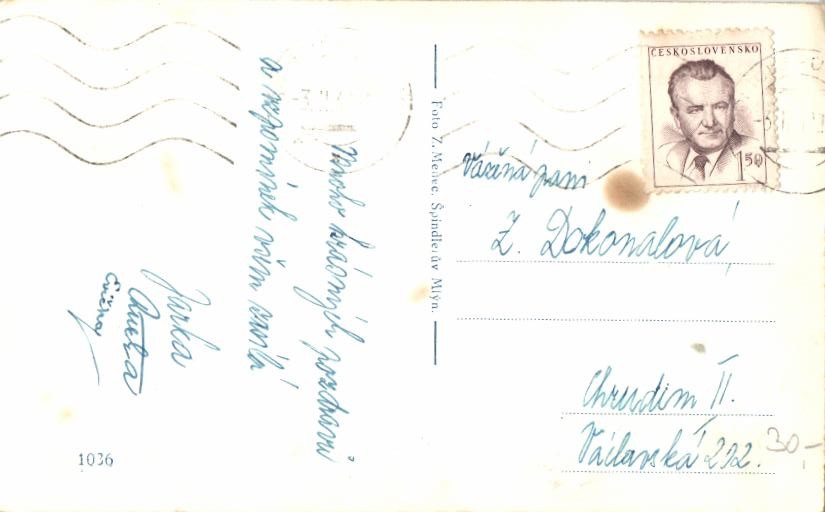 Mnoho krásných pozdravů
a vzpomínek vám zasílá
Jarka
Foto Z. Menec, Špindlerův Mlýn.
ČESKOSLOVENSKO
1.50
Vážená paní
Z. Dokonalová,
Chrudim II.
Václavská 292.
30,-
1036